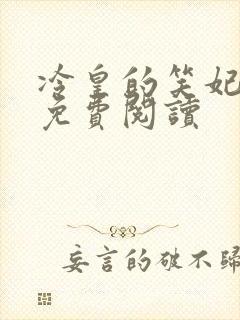 冷皇的笑妃
免費閱讀
妄言的破不歸